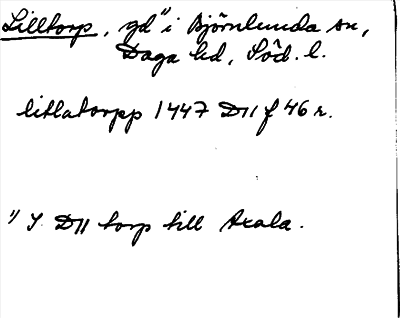 Lilltorp, gd 1) i Björnlunda sn,
Daga hd, Söd. l.
litlatorpp 1447 D11 f 46 r.
1) I D11 torp till Axala.